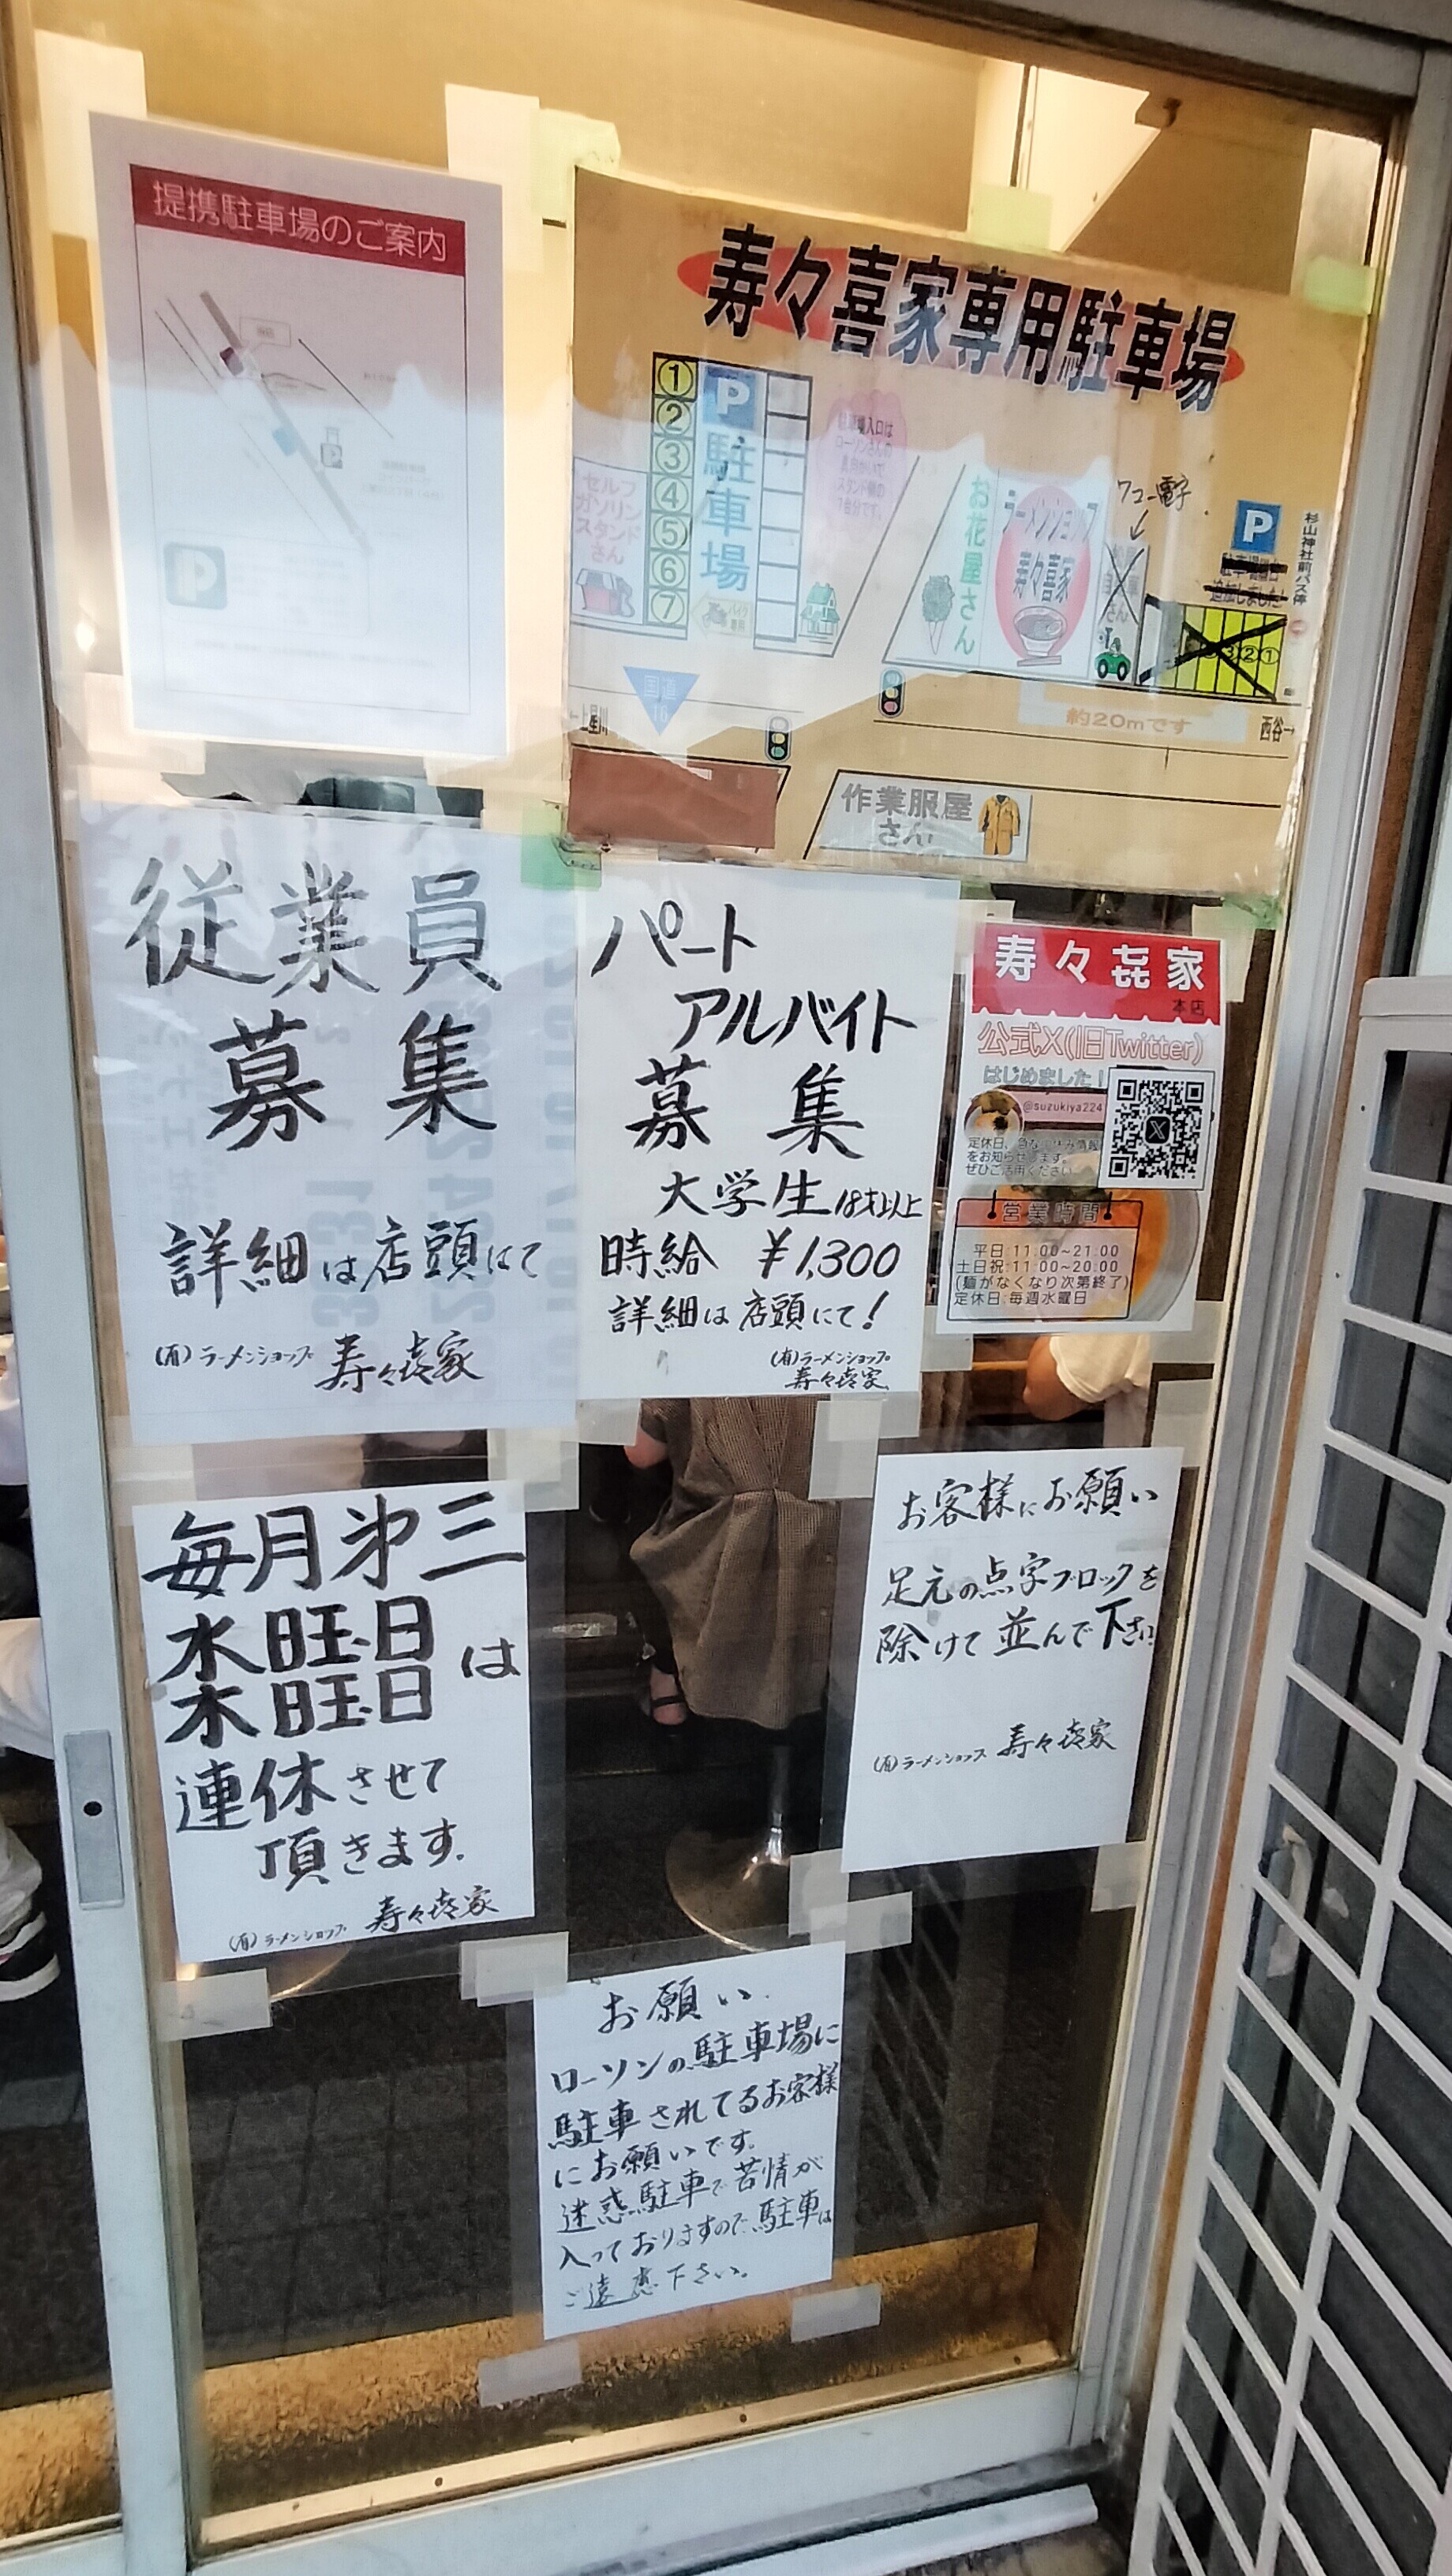 提携駐車場のご案内
P
寿々喜家専用駐車場
①
②
③
④
⑤
⑥
⑦
P
駐車場
バイク
専用
セルフ
ガソリン
スタンド
さん
駐車場入口は
ローソンさんの
お花屋さん
ラーメンショップ
寿々喜家
ワコー電子
P
杉山神社前バス停
追加しました!
③②①
国道
16
←上星川
約20mです
西谷→
作業服屋
さん
従業員
募集
詳細は店頭にて
(有)ラーメンショップ 寿々㐂家
パート
アルバイト
募集
大学生18才以上
時給 ¥1,300
詳細は店頭にて!
(有)ラーメンショップ
寿々㐂家
寿々㐂家
本店
公式X(旧Twitter)
はじめました!
@suzukiya224
定休日、急なお休み情報
をお知らせします。
ぜひご活用ください
営業時間
平日:11:00~21:00
土日祝:11:00~20:00
(麺がなくなり次第終了)
定休日:毎週水曜日
毎月第三
水曜日
木曜日は
連休させて
頂きます.
(有)ラーメンショップ 寿々㐂家
お客様にお願い
足元の点字ブロックを
除けて並んで下さい
(有)ラーメンショップ 寿々㐂家
お願い.
ローソンの駐車場に
駐車されてるお客様
にお願いです。
迷惑駐車で苦情が
入っておりますので、駐車は
ご遠慮下さい。